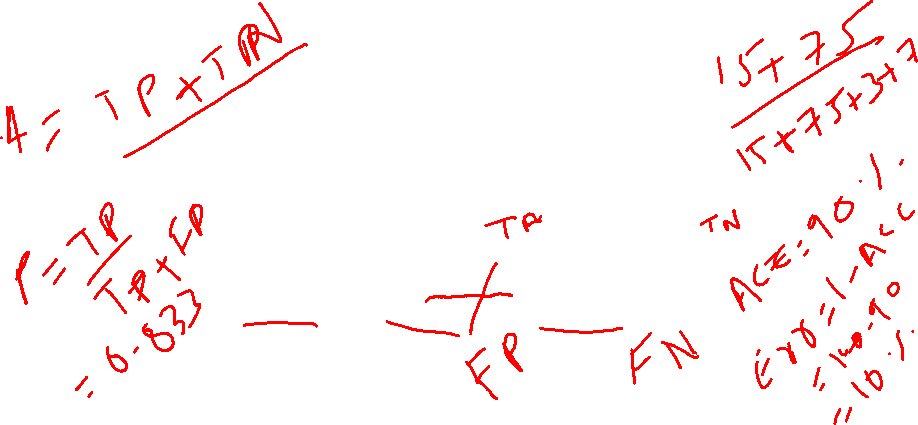 A = TP + TN
15 + 75
15 + 75 + 3 + 7
P = TP
TP + FP
= 0.833
TP
TN
FP
FN
ACC = 90%.
Err = 1 - ACC
= 100 - 90
= 10%.